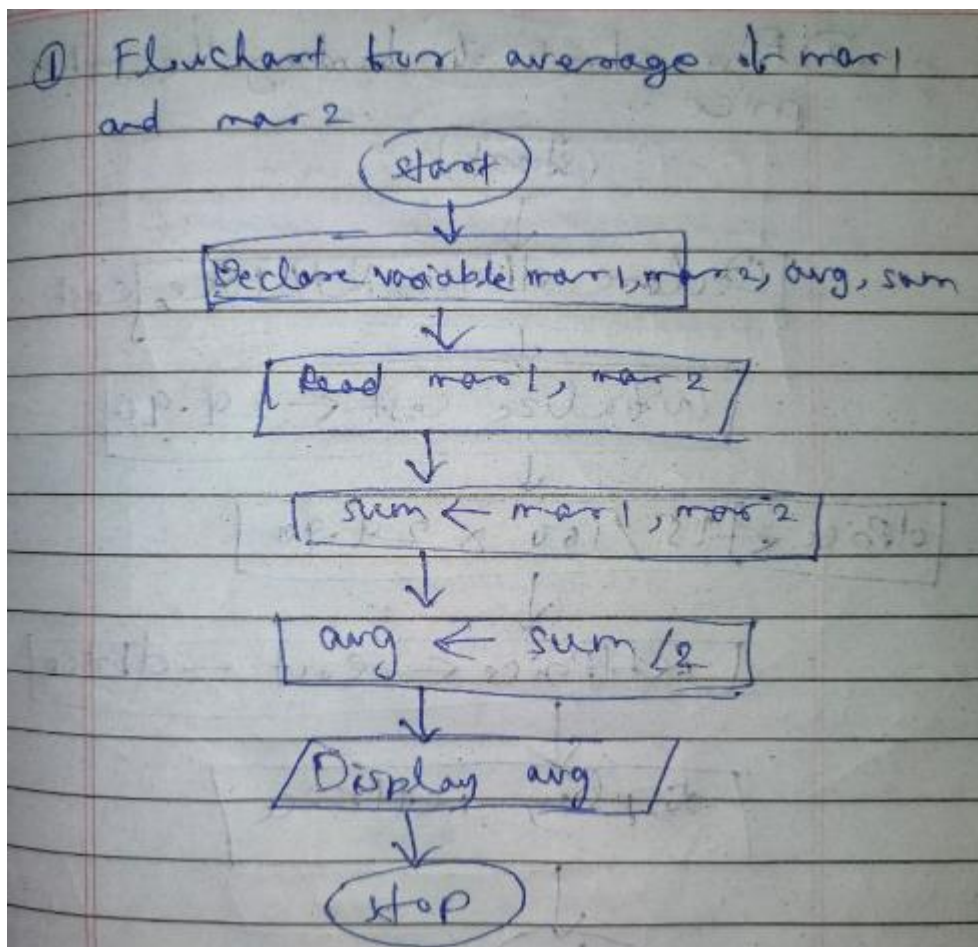 ① Fluchart for average of mar1
and mar2
start
Declare variable mar1, mar2, avg, sum
Read mar1, mar2
sum ← mar1, mar2
avg ← sum/2
Display avg
stop